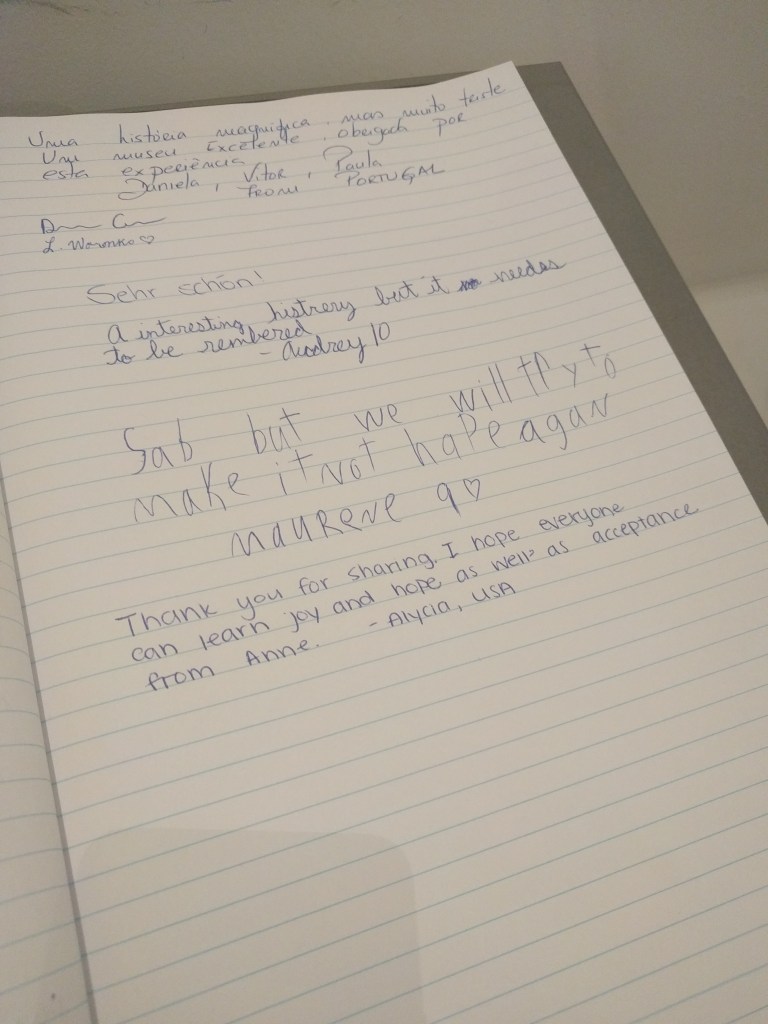 Uma história magnifica, mas muito triste
Um museu Excelente. obrigada por
esta experiência
Daniela, Vitor, Paula
From PORTUGAL
L. Woronko ♡
Sehr schön!
A interesting histrery but it needs
to be rembered
- Audrey 10
Sab but we will try to
make it not hape agan
MAUReNe 9♡
Thank you for sharing. I hope everyone
can learn joy and hope as well as acceptance
from Anne. - Alycia, USA